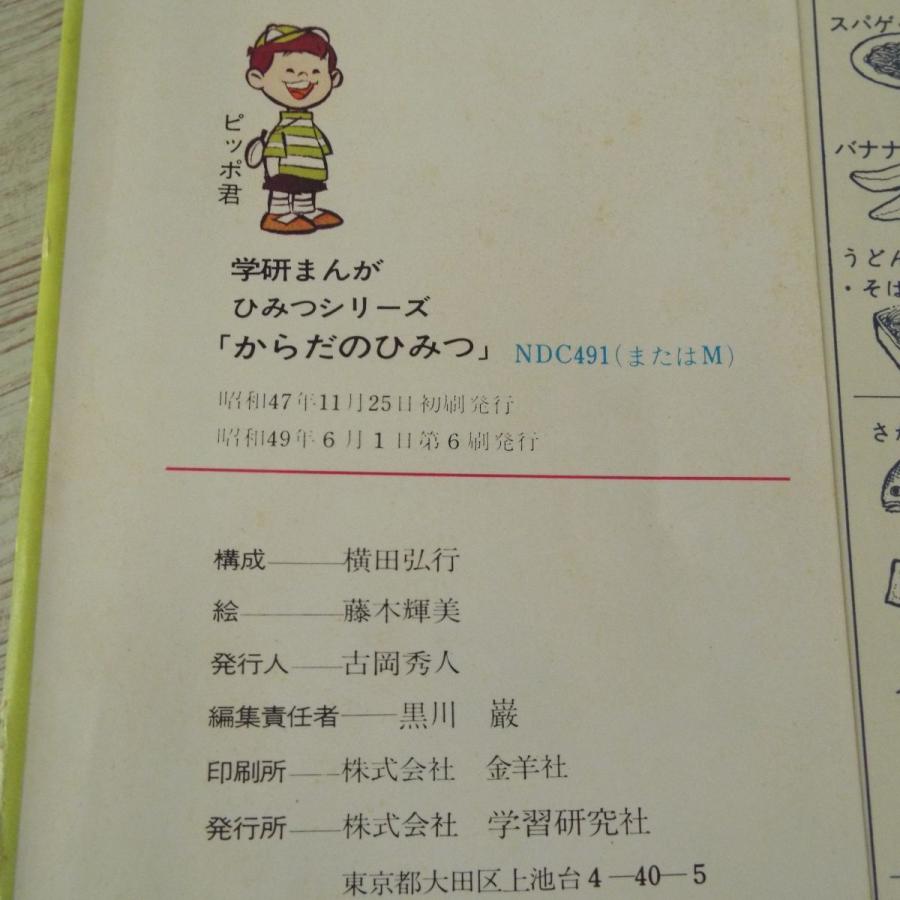 ピッポ君
学研まんが
ひみつシリーズ
「からだのひみつ」 NDC491(またはM)
昭和47年11月25日初刷発行
昭和49年6月1日第6刷発行
構成――横田弘行
絵――藤木輝美
発行人――古岡秀人
編集責任者――黒川 巌
印刷所――株式会社 金羊社
発行所――株式会社 学習研究社
東京都大田区上池台4―40―5
スパゲ
バナナ
うどん
・そば
さか